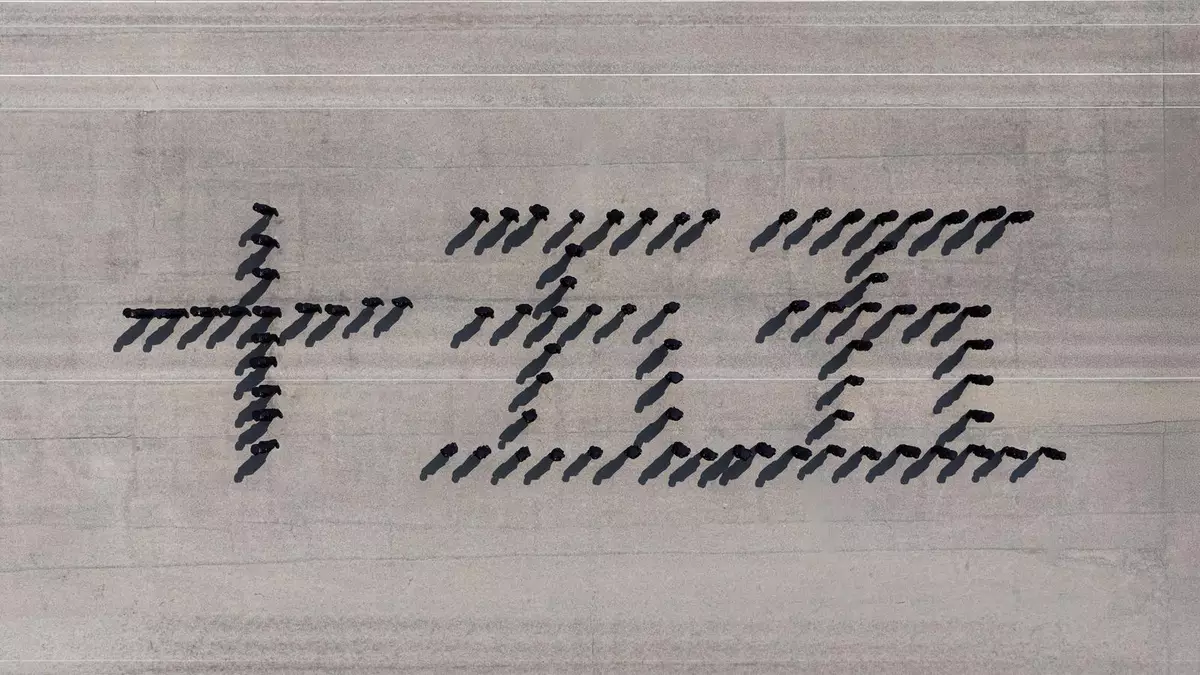 十五五